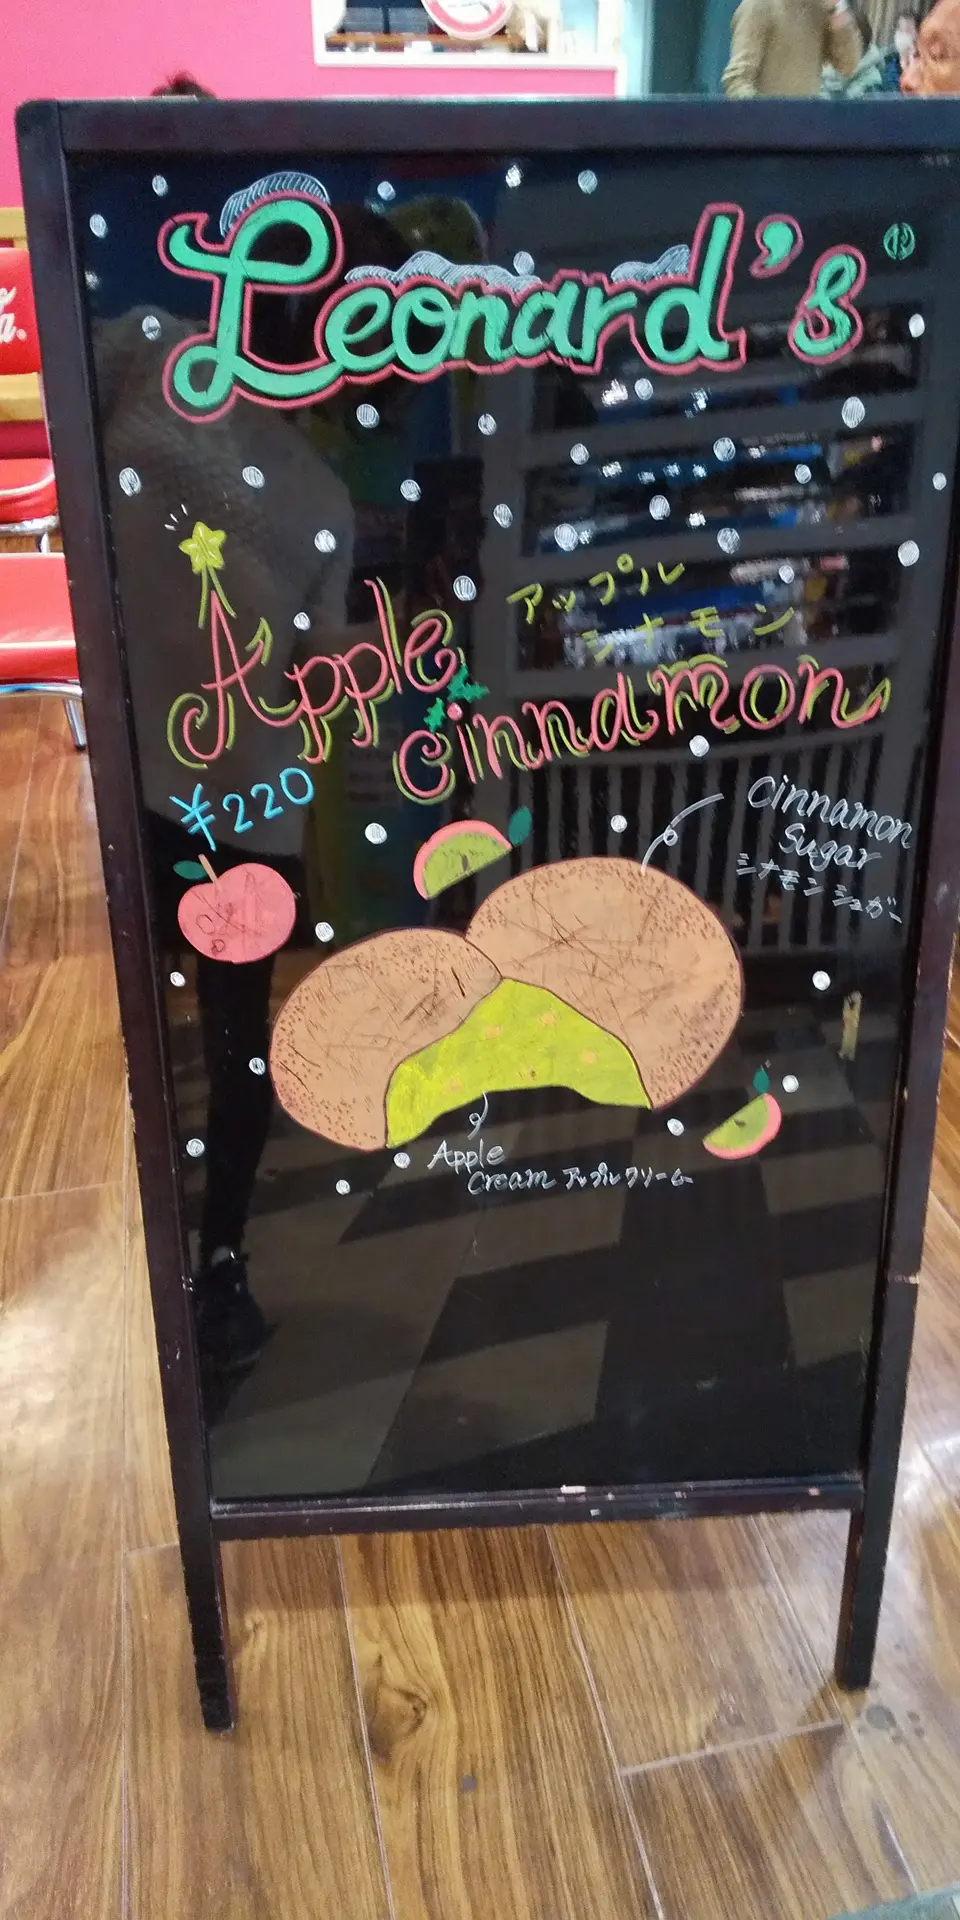 Leonard's
Apple
アップル
シナモン
cinnamon
¥220
Cinnamon
Sugar
シナモンシュガー
Apple
Cream アップルクリーム